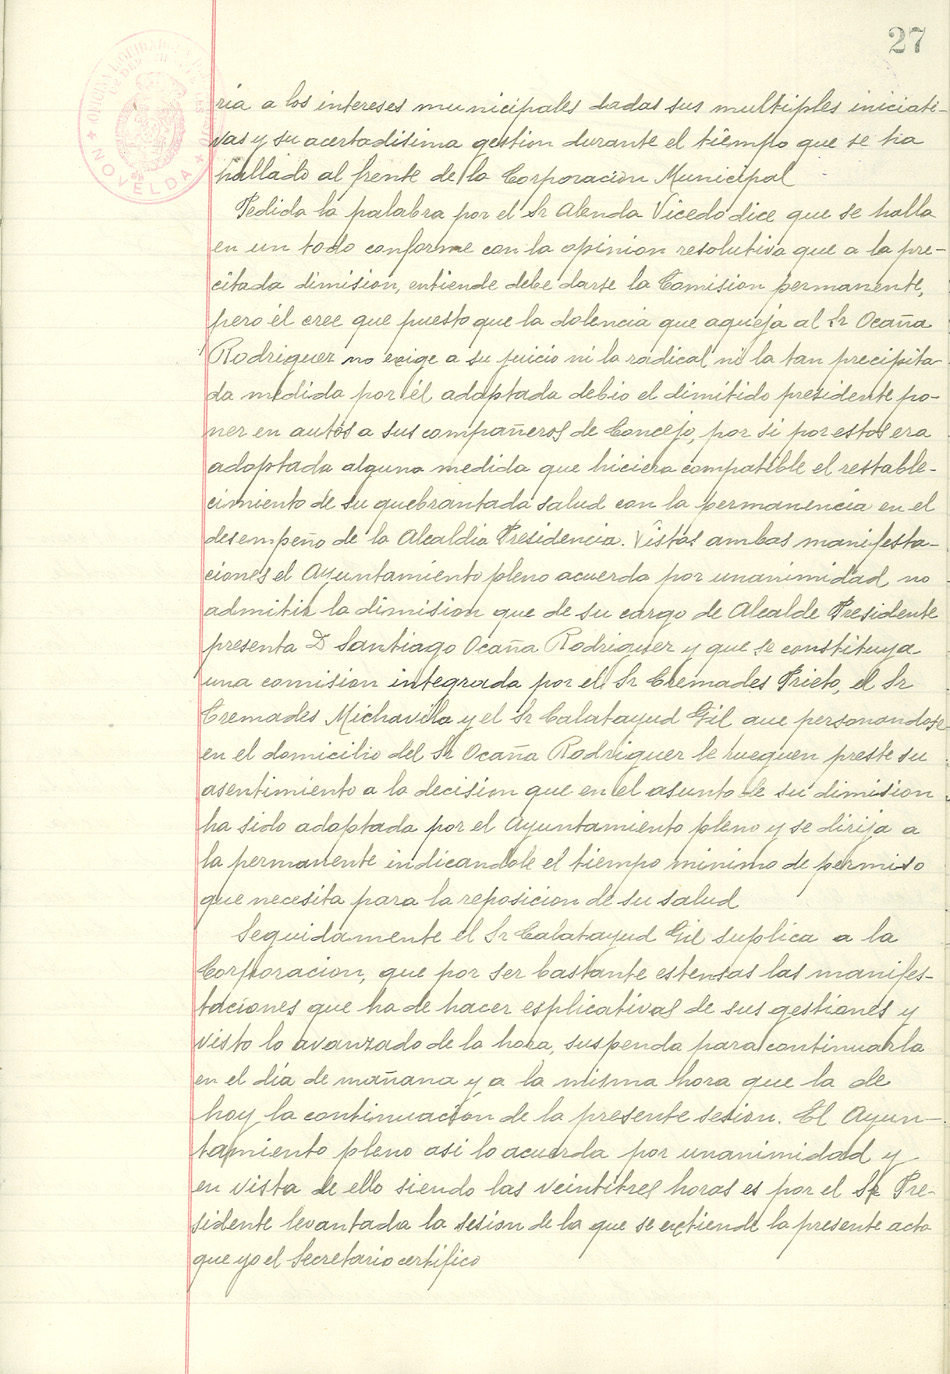 27
NOVELDA
ria a los intereses municipales dadas sus multiples iniciati-
vas y su acertadisima gestion durante el tiempo que se ha
hallado al frente de la Corporación Municipal
Pedida la palabra por el Sr Alenda Vicedo dice que se halla
en un todo conforme con la opinion resolutiva que a la pre-
citada dimision, entiende debe darse la Comision permanente,
pero él cree que puesto que la dolencia que aqueja al Sr Ocaña
Rodriguez no exige a su juicio ni la radical ni la tan precipita-
da medida por él adoptada debio el dimitido presidente po-
ner en autos a sus compañeros de Concejo, por si por estos era
adoptada alguna medida que hiciera compatible el restable-
cimiento de su quebrantada salud con la permanencia en el
desempeño de la Alcaldia Presidencia. Vistas ambas manifesta-
ciones el Ayuntamiento pleno acuerda por unanimidad no
admitir la dimision que de su cargo de Alcalde Presidente
presenta D Santiago Ocaña Rodriguez y que se constituya
una comision integrada por el Sr Cremades Prieto, el Sr
Cremades Michavila y el Sr Calatayud Gil que personandose
en el domicilio del Sr Ocaña Rodriguez le rueguen preste su
asentimiento a la decision que en el asunto de su dimision
ha sido adoptada por el Ayuntamiento pleno y se dirija a
la permanente indicandole el tiempo minimo de permiso
que necesita para la reposicion de su salud
Seguidamente el Sr Calatayud Gil suplica a la
Corporacion, que por ser bastante estensas las manifes-
taciones que ha de hacer esplicativas de sus gestiones y
visto lo avanzado de la hora, suspenda para continuarla
en el dia de mañana y a la misma hora que la de
hoy la continuación de la presente sesion. El Ayun-
tamiento pleno asi lo acuerda por unanimidad y
en vista de ello siendo las veintitres horas es por el Sr Pre-
sidente levantada la sesion de la que se extiende la presente acta
que yo el Secretario certifico